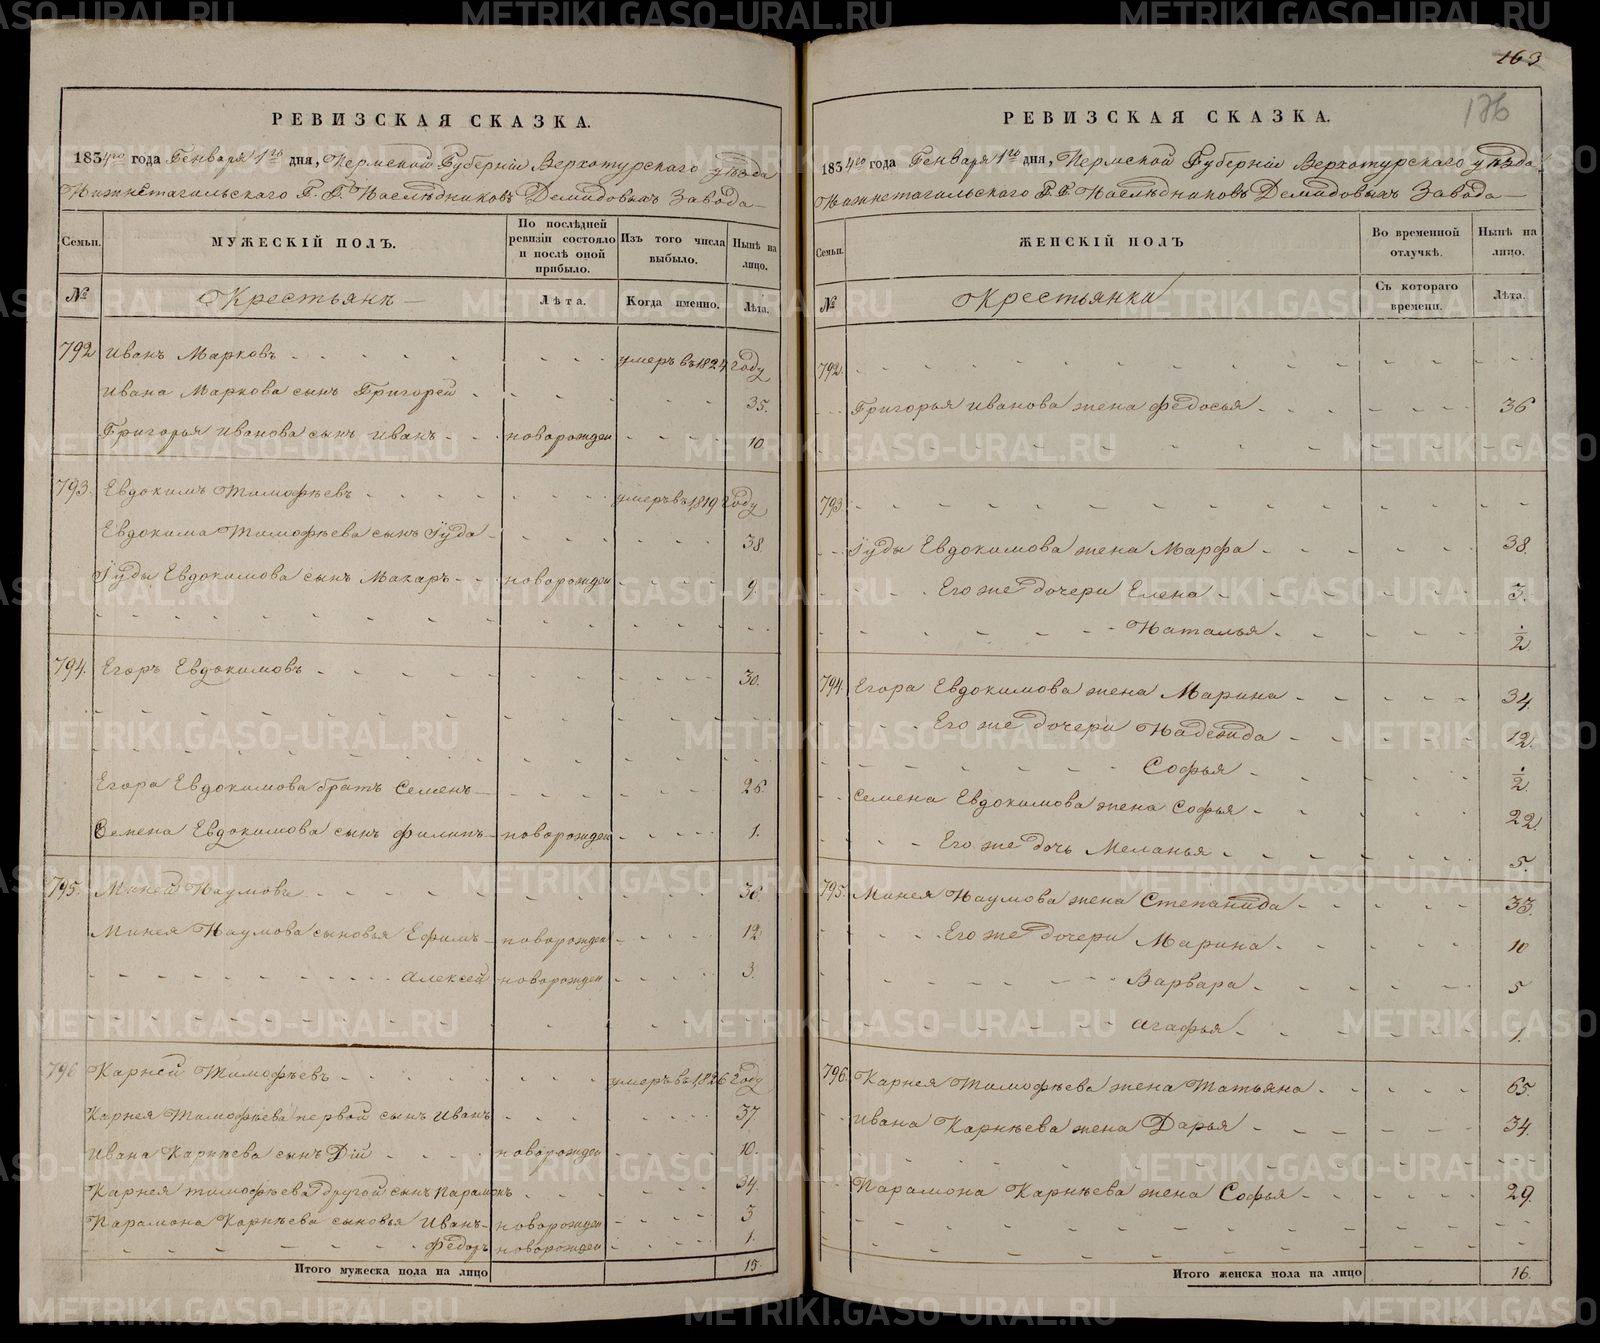 163
176
РЕВИЗСКАЯ СКАЗКА.
1834го года Генваря 1го дня, Пермской Губерніи Верхотурского уѣзда
Нижнетагильскаго Г. Г. Наслѣдниковъ Демидовыхъ Завода
Семьи.
МУЖЕСКІЙ ПОЛЪ.
По послѣдней ревизіи состояло и послѣ оной прибыло.
Изъ того числа выбыло.
Нынѣ на лицо.
№
Крестьянъ
Лѣта.
Когда именно.
Лѣта.
792 Иванъ Марковъ умеръ въ 1824 году
Ивана Маркова сынъ Григорей 35.
Григорья Иванова сынъ Иванъ новорожден 10.
793. Евдокимъ Тимофѣевъ умеръ въ 1819 году
Евдокима Тимофѣева сынъ Іуда 38.
Іуды Евдокимова сынъ Макаръ новорожден 9.
794. Егоръ Евдокимовъ 30.
Егора Евдокимова братъ Семенъ 26.
Семена Евдокимова сынъ Филипъ новорожден 1.
795. Миней Наумовъ 36.
Минея Наумова сыновья Ефимъ новорожден 12
Алексей новорожден 3.
796 Карней Тимофѣевъ умеръ въ 1826 году
Карнея Тимофѣева первой сынъ Иванъ 37
Ивана Карнѣева сынъ Дій новорожден 10.
Карнея Тимофѣева другой сынъ Парамонъ 34.
Парамона Карнѣева сыновья Иванъ новорожден 3
Федоръ новорожден 1.
Итого мужеска пола на лицо 15.
РЕВИЗСКАЯ СКАЗКА.
1834го года Генваря 1го дня, Пермской Губерніи Верхотурскаго уѣзда
Нижнетагильскаго Г. Г. Наслѣдниковъ Демидовыхъ Завода
Семьи.
ЖЕНСКІЙ ПОЛЪ
Во временной отлучкѣ.
Нынѣ на лицо.
№
Крестьянки
Съ котораго времени.
Лѣта.
792.
Григорья Иванова жена Федосья 36
793
Іуды Евдокимова жена Марфа 38.
Его же дочери Елена 3.
Наталья 1/2
794. Егора Евдокимова жена Марина 34.
Его же дочери Надежда 12.
Софья 1/2
Семена Евдокимова жена Софья 22.
Его же дочь Меланья 5.
795. Минея Наумова жена Степанида 33.
Его же дочери Марина 10
Варвара 5
Агафья 1.
796. Карнея Тимофѣева жена Татьяна 65.
Ивана Карнѣева жена Дарья 34.
Парамона Карнѣева жена Софья 29.
Итого женска пола на лицо 16.
METRIKI.GASO-URAL.RU